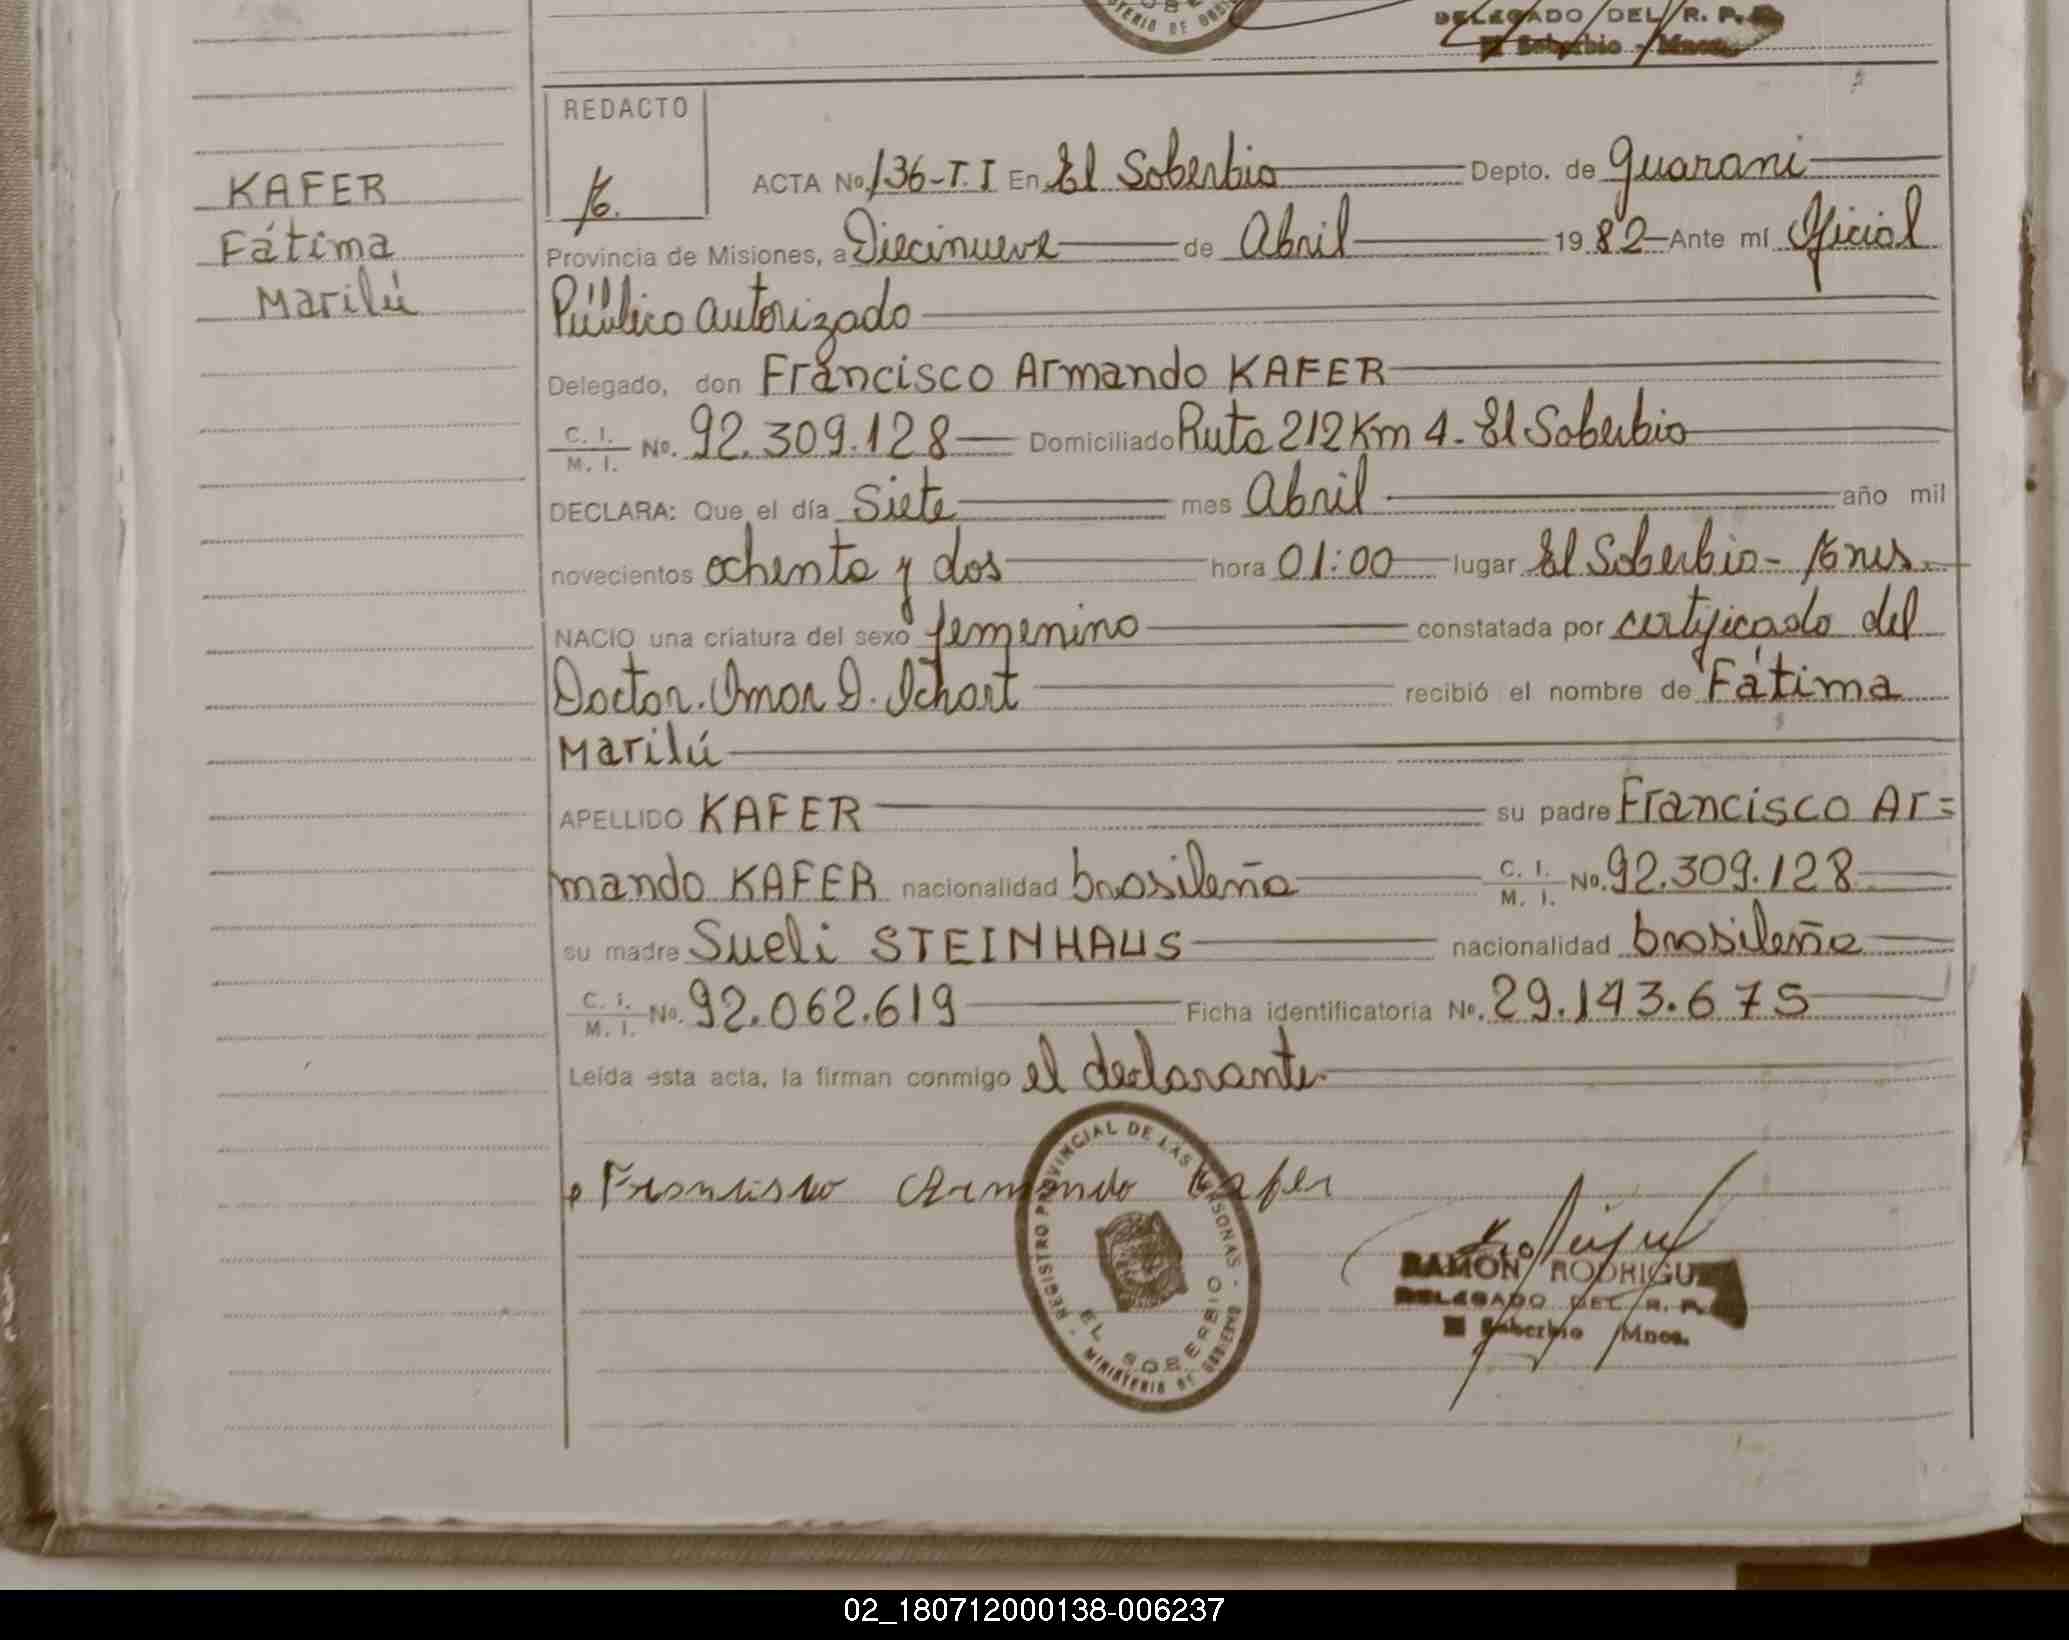 DELEGADO DEL R. P.
El Soberbio - Mnes.
REDACTO
KAFER
Fátima
Marilú
ACTA No. 136-T.I En El Soberbio Depto. de Guarani
Provincia de Misiones, a Diecinueve de Abril 19 82 Ante mí Oficial
Público autorizado
Delegado, don Francisco Armando KAFER
C. I. / M. I. No. 92.309.128 Domiciliado Ruta 212 Km 4. El Soberbio
DECLARA: Que el día Siete mes Abril año mil
novecientos ochenta y dos hora 01:00 lugar El Soberbio - Mnes.
NACIO una criatura del sexo femenino constatada por certificado del
Doctor. Omar D. Ichart recibió el nombre de Fátima
Marilú
APELLIDO KAFER su padre Francisco Ar=
mando KAFER nacionalidad brasileña C. I. / M. I. No. 92.309.128
su madre Sueli STEINHAUS nacionalidad brasileña
C. I. / M. I. No. 92.062.619 Ficha identificatoria No. 29.143.675
Leída esta acta, la firman conmigo el declarante.
Francisco Armando Kafer
REGISTRO PROVINCIAL DE LAS PERSONAS - MINISTERIO DE GOBIERNO -
EL SOBERBIO
RAMON RODRIGUEZ
DELEGADO DEL R. P.
El Soberbio Mnes.
02_180712000138-006237